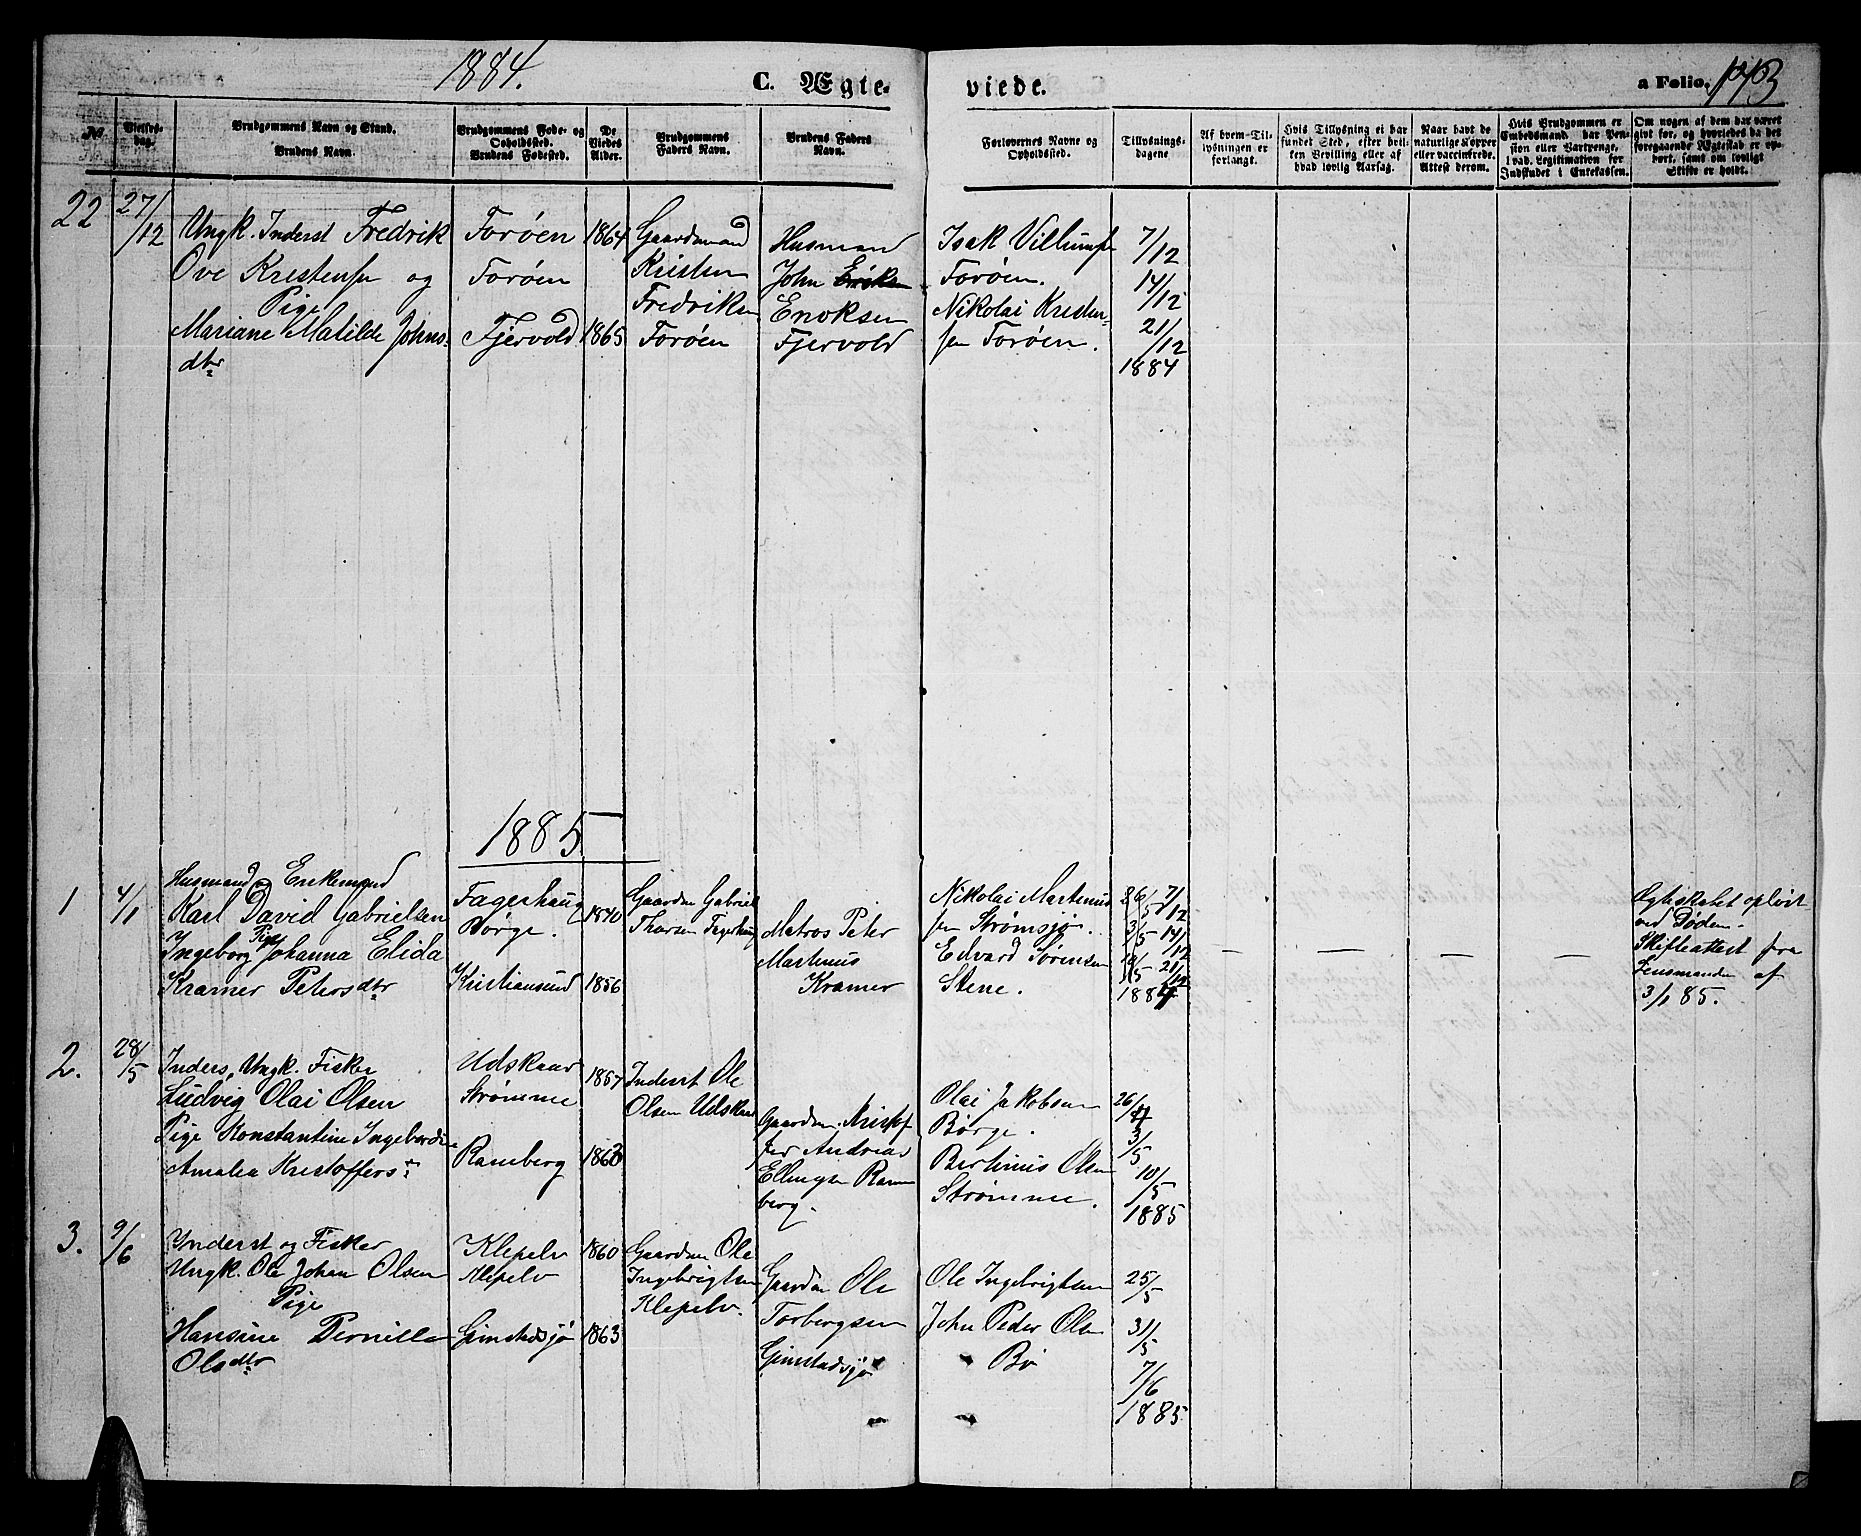 1884.
C. Ægte-
viede.
a Folio. 143
No.
Vielses-
dag.
Brudgommens Navn og Stand.
Brudens Navn.
Brudgommens Føde- og
Opholdssted.
Brudens Fødested.
De
Viedes
Alder.
Brudgommens
Faders Navn.
Brudens Faders
Navn.
Forlovernes Navne og
Opholdssted.
Tillysnings-
dagene
Af hvem Til-
lysningen er
forlangt.
Hvis Tillysning ei har
fundet Sted, efter hvil-
ken Bevilling eller af
hvad lovlig Aarsag.
Naar havt de
naturlige Kopper
eller vaccinerede.
Attest derom.
Hvis Brudgommen er
Embedsmand har Pen-
sion eller Vartpenge,
hvad Legitimation for
Indskudet i Enkekassen.
Om nogen af dem har været
givt før, og hvorledes da det
foregaaende Ægteskab er op-
hørt, samt om lovligt
Skifte er holdt.
22
27/12
Ungk. Inderst Fredrik
Ove Kristensen og
Pige
Mariane Matilde Johns-
dtr
Forøen
Forøen
Fjervold
1864
1865
Gaardmand
Kristen
Fredriksen
Forøen
Husmand
John Eriksen
Enoksen
Fjervold
Isak Villumsen
Forøen.
Nikolai Kristen-
sen Forøen.
7/12
14/12
21/12
1884
1885
1
4/1
Husmand Enkemand
Karl David Gabrielsen
Pige
Ingeborg Johanna Elida
Kramer Petersdtr
Fagerhaug
Børge.
Kristiansund
1840
1856
Gaardm Gabriel
Thorsen Fagerhaug
Matros Peter
Martinus
Kramer
Nikolai Martinus-
sen Strømsjø.
Edvard Sørensen
Stene.
26/5 7/12
3/5 14/12
10/5 21/12
1884
—
—
—
—
—
Ægteskabet opløst
ved Døden.
Skifteattest fra
Lensmanden af
3/1 85.
2.
28/5
Inders, Ungk. Fisker
Ludvig Olai Olsen
Pige Konstantine Ingebord
Amalia Kristoffersdtr
Udskaar
Strømme
Ramberg
1857
1863
Inderst Ole
Olsen Udskaar
Gaardm. Kristof-
fer Andreas
Ellingsen Ram-
berg.
Olai Jakobsen
Børge.
Bertinus Olsen
Strømme.
26/4
3/5
10/5
1885
3.
9/6
Inderst og Fisker
Ungk. Ole Johan Olsen
Pige
Hansine Pernille
Olsdtr
Klepelv
Klepelv
Gimstadsjø
1860
1863
Gaardm Ole
Ingebrigtsen
Klepelv.
Gaardm Ole
Torbergsen
Gimstadsjø
Ole Ingebrigtsen
John Peder Olsen
Bø
25/5
31/5
7/6
1885